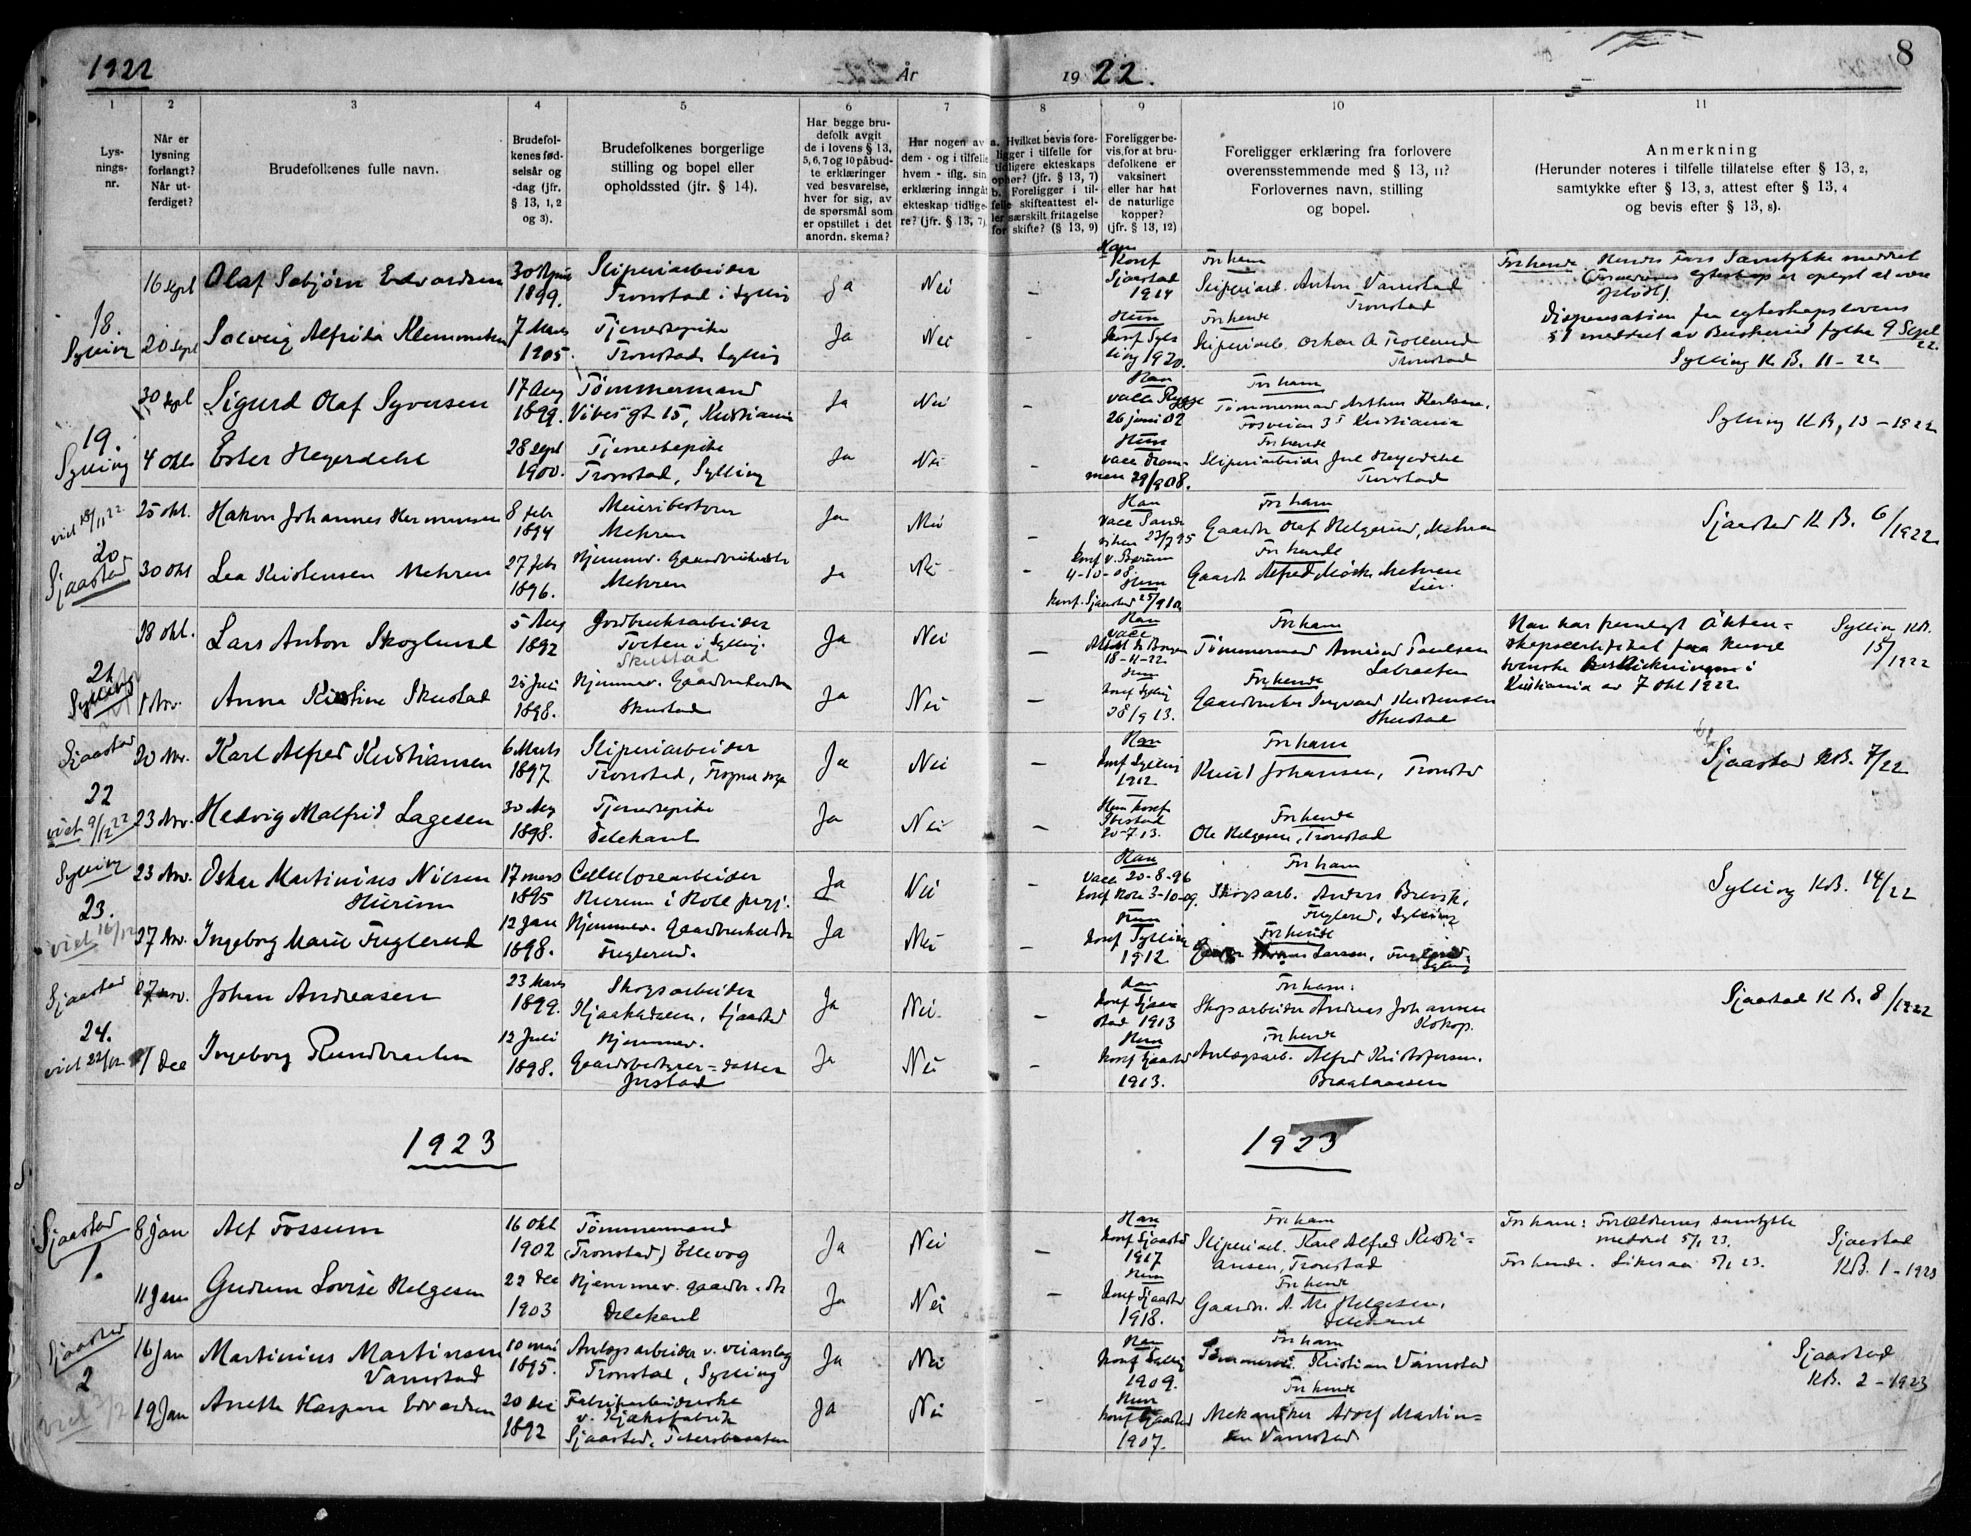 1922
År
19 22.
8
1 2 3 4 5 6 7 8 9 10 11
Lys-
nings-
nr.
Når er
lysning
forlangt?
Når ut-
ferdiget?
Brudefolkenes fulle navn.
Brudefol-
kenes fød-
selsår og
-dag (jfr.
§ 13, 1, 2
og 3).
Brudefolkenes borgerlige
stilling og bopel eller
opholdssted (jfr. § 14).
Har begge bru-
defolk avgit
de i lovens § 13,
5, 6, 7 og 10 påbud-
te erklæringer
ved besvarelse,
hver for sig, av
de spørsmål som
er opstillet i det
anordn. skema?
Har nogen av
dem - og i tilfelle
hvem - iflg. sin
erklæring inngåt
ekteskap tidlige-
re? (jfr. § 13, 7)
a. Hvilket bevis fore-
ligger i tilfelle for
tidligere ekteskaps
ophør? (jfr. § 13, 7)
b. Foreligger i til-
felle skifteattest el-
ler særskilt fritagelse
for skifte? (§ 13, 9)
Foreligger be-
vis, for at bru-
defolkene er
vaksinert
eller har hat
de naturlige
kopper?
(jfr. § 13, 12)
Foreligger erklæring fra forlovere
overensstemmende med § 13, 11?
Forlovernes navn, stilling
og bopel.
Anmerkning
(Herunder noteres i tilfelle tillatelse efter § 13, 2,
samtykke efter § 13, 3, attest efter § 13, 4
og bevis efter § 13, 8).
18.
Sylling
16 Sept Olaf Edvardsen 1899. Sliperiarbeider
Tronstad i Sylling
Ja Nei -
Han
Konf
Sjaastad
1914
For ham
Sliperiarb. Anton Vamstad
Tronstad
For hende Hendes Fars Samtykke meddelt
20 Sept Solveig Alfrida Klemmetsen 7 Mars
1905. Tjenestepike
Tronstad, Sylling
Ja Nei -
Hun
Konf Syl-
ling 1920.
For hende
Sliperiarb. Oskar A
Tronstad
Dispensation fra egteskapslovens
§ 1 meddelt av Buskerud fylke 9 Sept
22.
Sylling K B. 11-22
19.
Sylling
30 Sept Sigurd Olaf Syversen 17 Aug
1899. Tømmermand
Vibes gt 15, Kristiania
Ja Nei -
Han
vacc Rygge
26 juni 02
For ham
Tømmermand Arthur Karlsen,
Fosveien 3 Kristiania
Sylling K B, 13-1922
4 Okt Ester Heyerdahl 28 Sept
1900. Tjenestepike
Tronstad, Sylling
Ja Nei -
Hun
vacc Dram-
men 29/9 08.
For hende
Sliperiarbeider Juul Heyerdahl
Tronstad
viet 18/11 22
20
Sjaastad
25 okt. Hakon Johannes Hermansen 8 febr
1894 Meieribestyrer
Mehren
Ja Nei -
Han
vacc Sande-
For ham
Gaardbr Olaf Helgerud, Mehren
Sjaastad K B. 6/1922
30 Okt Lea Kristensen Mehren 27 febr
1896. Hjemmev. Gaardbrukerdtr
Mehren
Ja Nei -
Konf v. Bærum
4-10-08.
Hun
Konf. Sjaastad
For hende
Gaardbr Alfred Mehren
Lier.
21
Sylling
28 Okt. Lars Anton Skoglund 5 Aug
1892 Jordbruksarbeider
Tveten i Sylling.
Skustad
Ja Nei
Han
vacc
18-11-22
For ham
Tømmermand Amund Paulsen
Labraaten
Han har fremlagt Äkten-
skapscertifikat fra Kungl
svenske i
Kristiania av 7 Okt 1922
Sylling KB.
15/1922
1 Nov. Anna Kristine Skustad 25 Juli
1898. Hjemmev. Gaardbrukerdtr
Skustad
Ja Nei -
Hun
Konf Sylling
28/9 13.
For hende
Gaardbruker Ingvard Kristensen
Skustad
Sjaastad
22
viet 9/12 22
20 Nov. Karl Alfred Kristiansen 6 Marts
1897 Sliperiarbeider
Tronstad,
Ja Nei
Han
Konf Sylling
1912
For ham
Knut Johansen, Tronstad
Sjaastad KB. 7/22
23 Nov. Hedvig Malfrid Lagesen 30 Aug
1898. Tjenestepike
Delekant
Ja Nei -
Hun Konf
Ibestad
20-7 13.
For hende
Ole Helgesen, Tronstad
Sylling
23.
viet 16/12
23 Nov. Oskar Martinius Nilsen
Hurum
17 mars
1895 Cellulosearbeider
Hurum i
Ja Nei -
Han
Vacc 20-8-96
For ham
Skogsarb. Anders
Fuglerud, Sylling
Sylling KB. 14/22
27 Nov. Ingeborg Marie Fuglerud 12 Jan
1898. Hjemmev. Gaardbrukerdtr
Fuglerud.
Ja Nei -
Hun
Konf Sylling
1912
For hende
Larsen, Fuglerud
Sylling
Sjaastad
24.
viet 22/12
27 Nov. Johan Andreasen 23 Mars
1899. Skogsarbeider
Sjaastad
Ja Nei. -
Han
Konf Sjaa-
stad 1913
For ham:
Skogsarbeider Andreas Johansen
Sjaastad K B. 8/1922
1 Dec Ingeborg Rundbraaten 12 Juli
1898. Hjemmev.
Gaardsbestyrer-datter
Justad
Ja Nei -
Hun
Konf Sjaastad
1913.
For hende
Anlægsarb. Alfred Kristofersen.
1923
1923
Sjaastad
1.
8 Jan Alf Fossum 16 Okt
1902 Tømmermand
(Tronstad) Ellevog
Ja Nei -
Han
Konf Sjaastad
1917
For ham
Sliperiarb. Karl Alfred Kristi-
ansen, Tronstad
For ham: Forældrenes samtykke
meddelt 5/1 23.
Sjaastad
KB. 1-1923
11 Jan Gudrun Lovise Helgesen 22 Dec
1903 Hjemmev. gaardbr. dtr
Delekant
Ja Nei -
Hun
Konf Sjaastad
1918.
For hende
Gaardbr. A. Helgesen,
Delekant
For hende. Likesaa 5/1 23.
Sjaastad
2
viet
16 Jan Martinius Martinsen
Vamstad
10 mai
1895. Anlægsarbeider v. veianlæg
Tronstad, Sylling
Ja Nei
Han
Konf Sylling
1909.
For ham
Kristian Vamstad
Sjaastad
KB. 2-1923
19 Jan Anette Kaspara Edvardsen 20 Dec
1892 Fabrikarbeiderske
v. Kjæksfabrik
Sjaastad,
Ja Nei -
Hun
Konf Sjaastad
1907.
For hende
Mekaniker Adolf Martin-
sen Vamstad